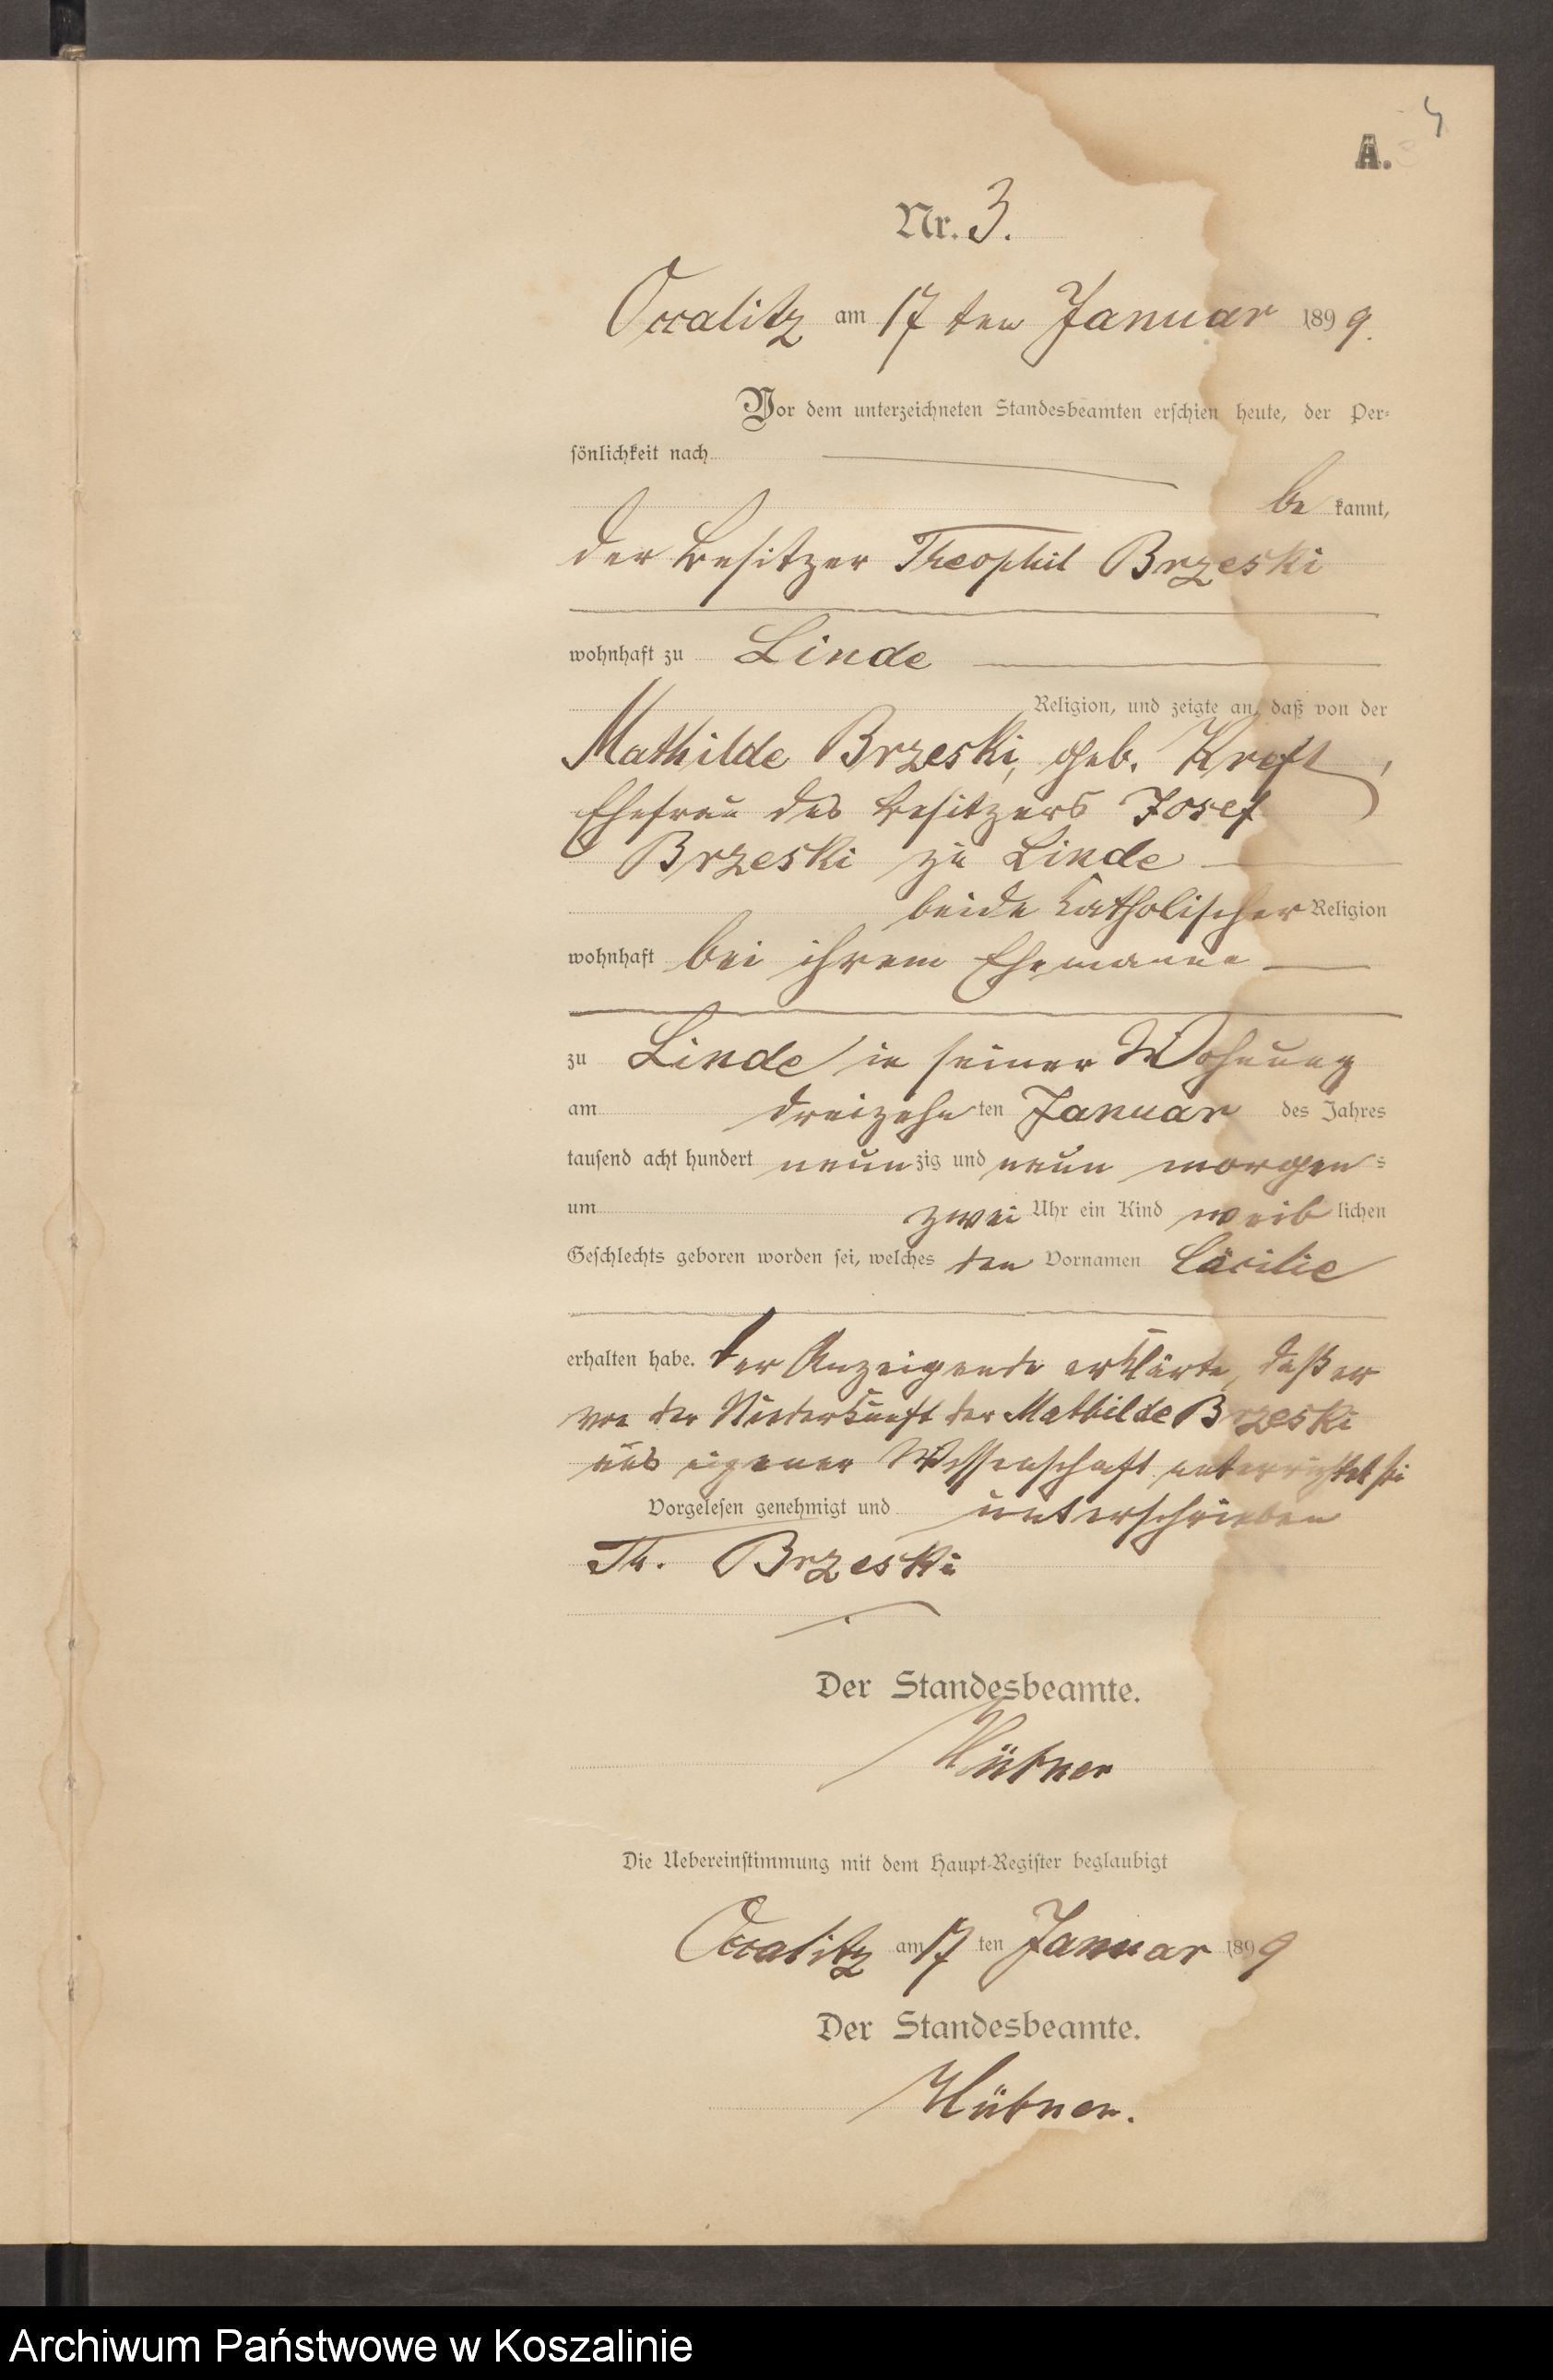 4
A.
Nr. 3.
Occalitz am 17 ten Januar 1899.
Vor dem unterzeichneten Standesbeamten erschien heute, der Per-
sönlichkeit nach
be kannt,
der Besitzer Theophil Brzeski
wohnhaft zu Linde
Religion, und zeigte an, daß von der
Mathilde Brzeski, geb. Kreft,
Ehefrau des Besitzers Josef
Brzeski zu Linde
beide katholischer Religion
wohnhaft bei ihrem Ehemanne
zu Linde in seiner Wohnung
am dreizehn ten Januar des Jahres
tausend acht hundert neun zig und neun morgens
um zwei Uhr ein Kind weib lichen
Geschlechts geboren worden sei, welches den Vornamen Cäcilie
erhalten habe. Der Anzeigende erklärte, daß er
von der Niederkunft der Mathilde Brzeski
aus eigener Wissenschaft unterrichtet sei
Vorgelesen genehmigt und unterschrieben
Th. Brzeski
Der Standesbeamte.
Hübner
Die Uebereinstimmung mit dem Haupt-Register beglaubigt
Occalitz am 17 ten Januar 1899
Der Standesbeamte.
Hübner.
Archiwum Państwowe w Koszalinie